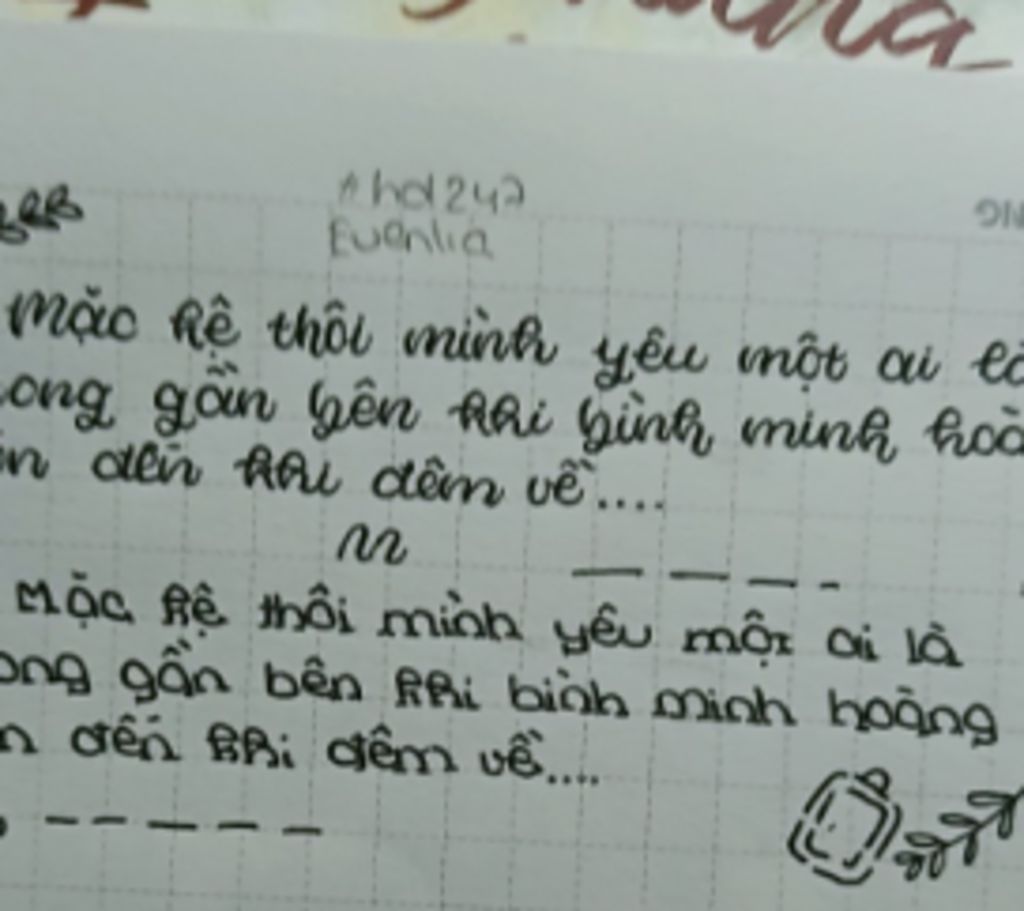 #hd247
Evenlia
mặc kệ thôi mình yêu một ai
ong gần bên khi bình minh
đến khi đêm về....
Mặc kệ thôi mình yêu một ai là
ong gần bên khi bình minh hoàng
n đến khi đêm về....